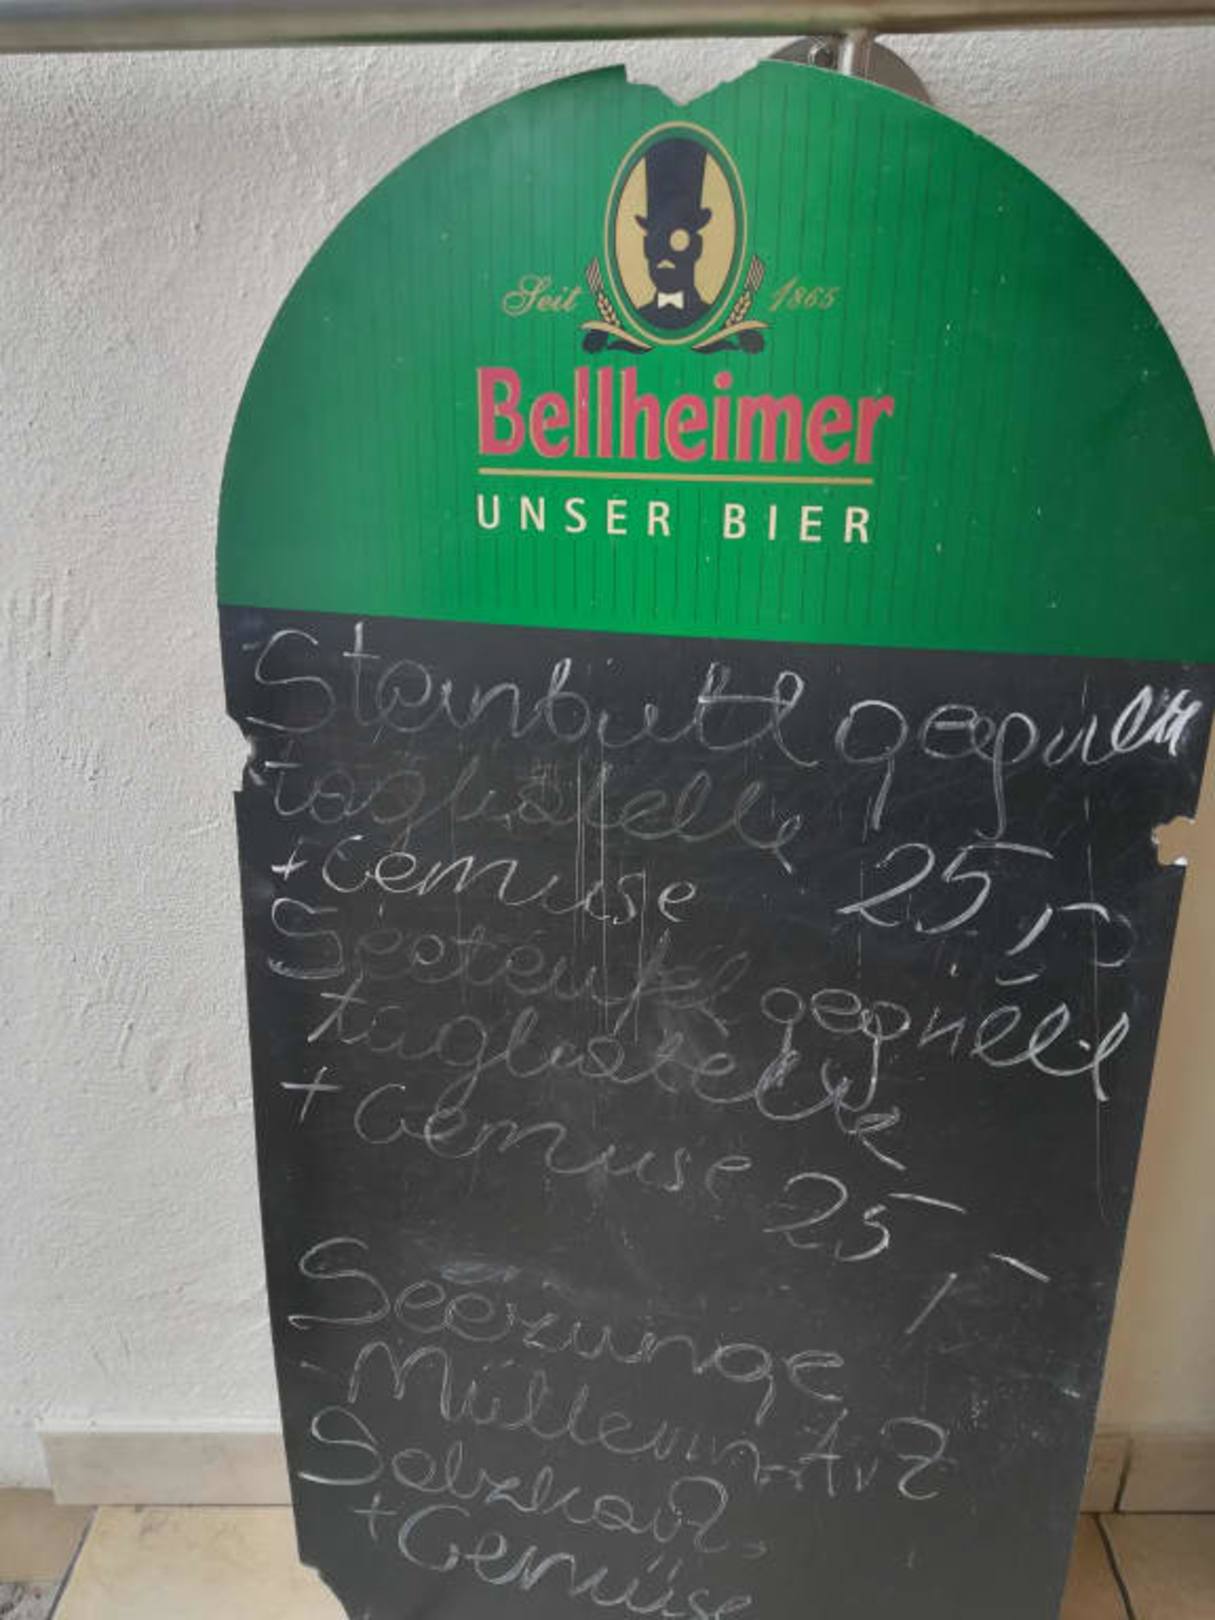 Seit 1865
Bellheimer
UNSER BIER
Steinbutt gegrillt
tagliatelle
+ Gemüse 25,-
Seeteufel gegrillt
tagliatelle
+ Gemüse 25,-
Seezunge
- Müllerin Art
Salzkart.
+ Gemüse